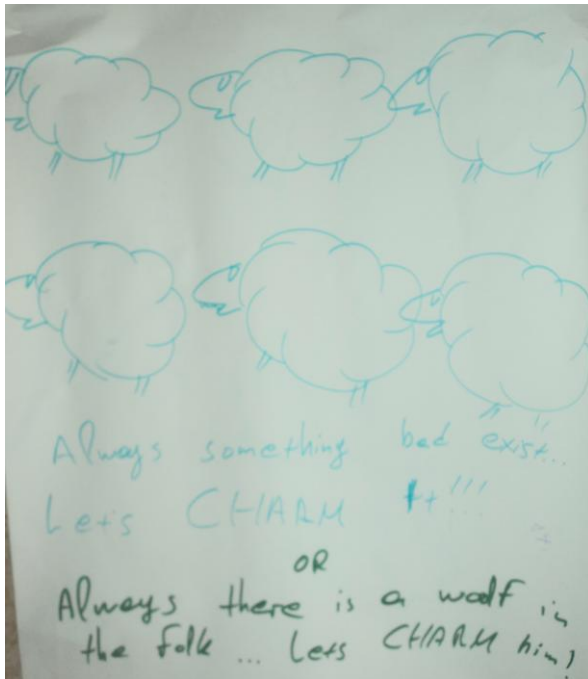 Always something bad exist...
Lets CHARM it!!!
OR
Always there is a wolf in
the folk ... Lets CHARM him!